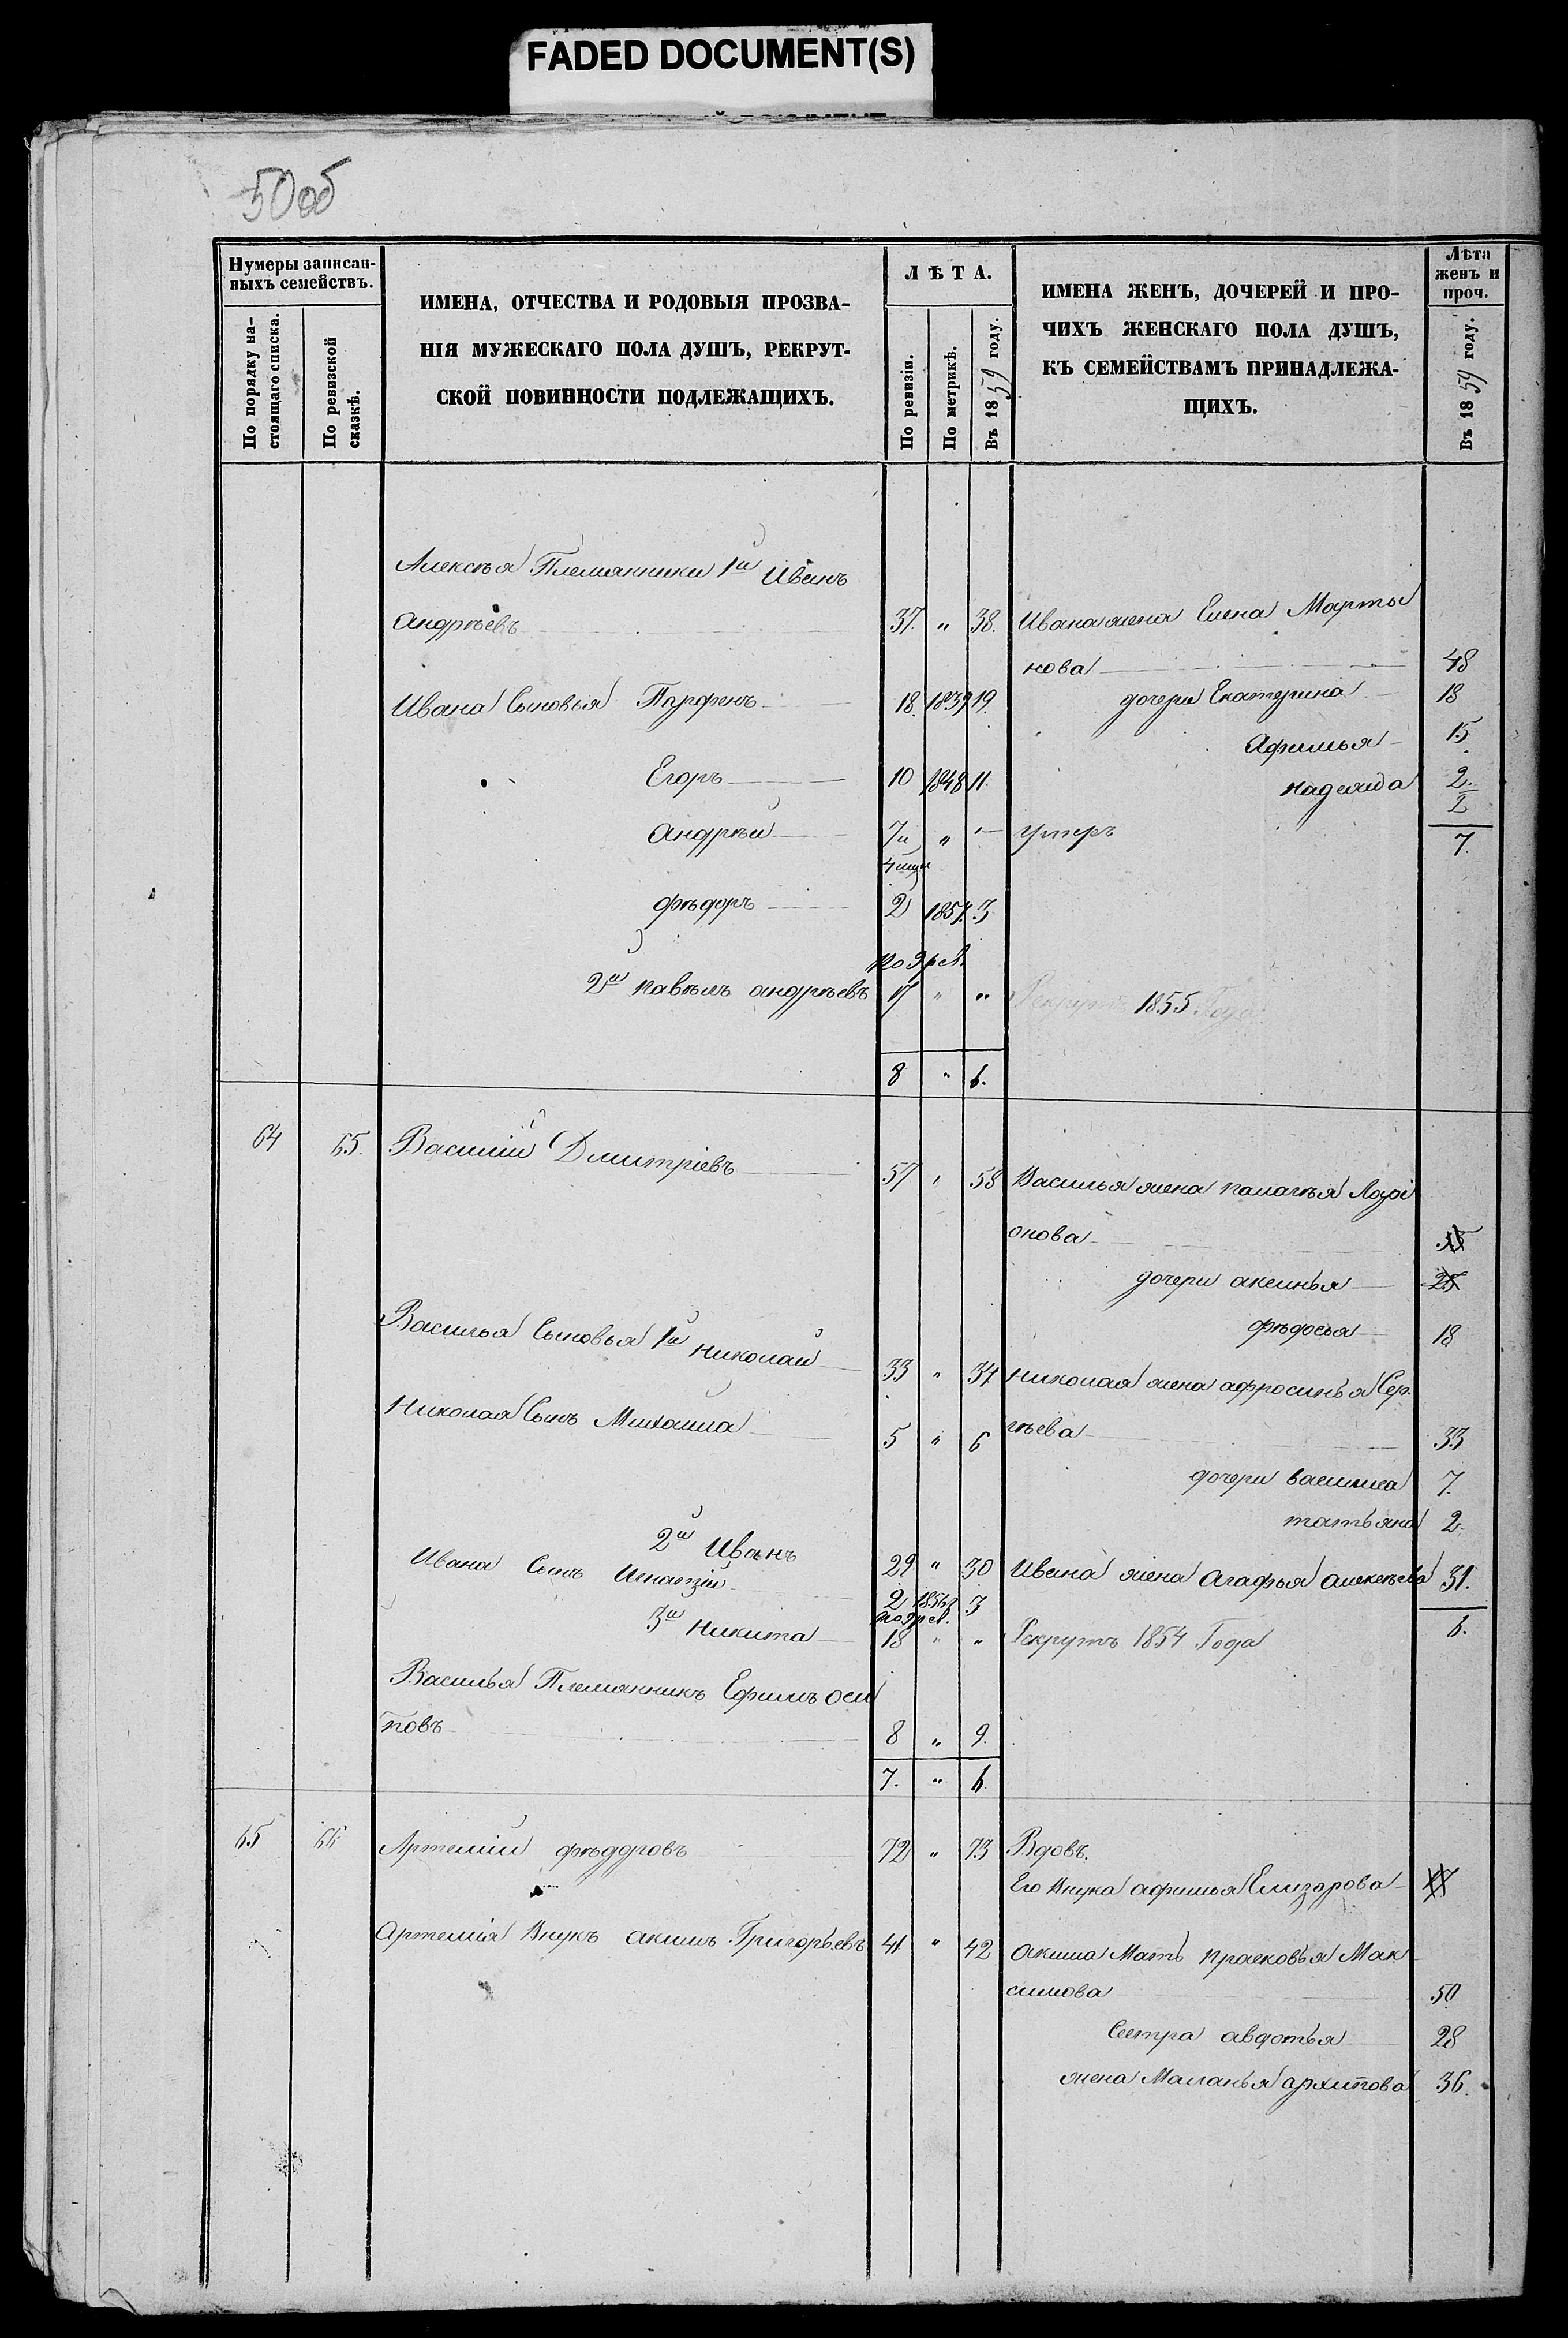 FADED DOCUMENT(S)
50об
Нумеры записан-
ныхъ семействъ.
По порядку на-
стоящаго списка.
По ревизской
сказкѣ.
ИМЕНА, ОТЧЕСТВА И РОДОВЫЯ ПРОЗВА-
НІЯ МУЖЕСКАГО ПОЛА ДУШЪ, РЕКРУТ-
СКОЙ ПОВИННОСТИ ПОДЛЕЖАЩИХЪ.
ЛѢТА.
По ревизіи.
По метрикѣ.
Въ 1859 году.
ИМЕНА ЖЕНЪ, ДОЧЕРЕЙ И ПРО-
ЧИХЪ ЖЕНСКАГО ПОЛА ДУШЪ,
КЪ СЕМЕЙСТВАМЪ ПРИНАДЛЕЖА-
ЩИХЪ.
Лѣта
женъ и
проч.
Въ 1859 году.
Алексѣя Племянники 1й Иванъ
Андрѣевъ 37. " 38. Ивана жена Елена Марты
нова 48
Ивана Сыновья Парфенъ 18. 1839 19. дочери Екатерина 18
Афимья 15
Егоръ 10 1848 11. надежда 2.
2
Андрѣй 7и " — умеръ 7.
фѣдоръ 2 1857. 3
по 9 рев.
2й павѣлъ андрѣевъ 17 " " Рекрутъ 1855 Года
8 " 6.
64 65. Василій Дмитріевъ 57 " 58 Василья жена палагѣя Ларі
онова
дочери аксинья 25
фѣдосья 18
Василья Сыновья 1й николай 33 " 34 николая жена афросинья Сер
гѣева 33
Николая Сынъ Михаила 5 " 6
дочери василиса 7.
татьяна 2.
2й Иванъ 29 " 30 Ивана жена Агафья алексѣева 31.
Ивана Сынъ Игнатій 2 1856 3
6.
по 9 рев.
3й никита 18 " " Рекрутъ 1854 Года
Василья Племянникъ Ефимъ оси
повъ 8 " 9.
7. " 6.
65 66 Артемій фѣдоровъ 72 " 73 Вдовъ.
Его внука афимья Елизарова
Артемія Внукъ акимъ Григорьевъ 41 " 42 акима Мать прасковья Мак
симова 50
Сестра авдотья 28
жена Маланья архипова 36.